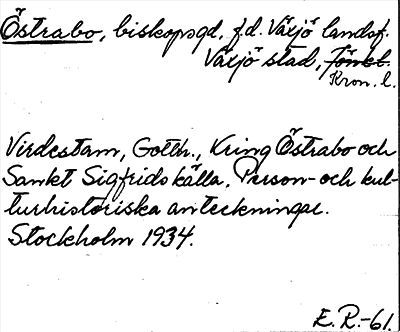 Östrabo, biskopsgd, f.d. Växjö landsf.
Växjö stad, Jönk.l.
Kron. l.
Virdestam, Gotth., Kring Östrabo och
Sankt Sigfrids källa. Person- och kul-
turhistoriska anteckningar.
Stockholm 1934.
E. R.-61.